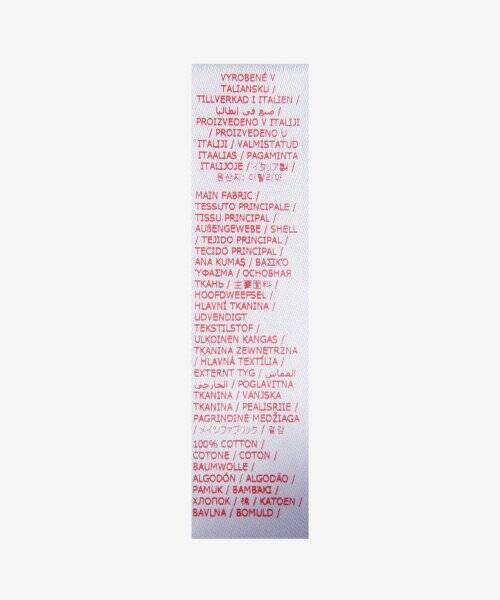 VYROBENÉ V
TALIANSKU /
TILLVERKAD I ITALIEN /
صنع في إيطاليا /
PROIZVEDENO V ITALIJI
/ PROIZVEDENO U
ITALIJI / VALMISTATUD
ITAALIAS / PAGAMINTA
ITALIJOJE / イタリア製 /
원산지: 이탈리아
MAIN FABRIC /
TESSUTO PRINCIPALE /
TISSU PRINCIPAL /
AUßENGEWEBE / SHELL
/ TEJIDO PRINCIPAL /
TECIDO PRINCIPAL /
ANA KUMAŞ / ΒΑΣΙΚΌ
ΎΦΑΣΜΑ / ОСНОВНАЯ
ТКАНЬ / 主要面料 /
HOOFDWEEFSEL /
HLAVNÍ TKANINA /
UDVENDIGT
TEKSTILSTOF /
ULKOINEN KANGAS /
TKANINA ZEWNĘTRZNA
/ HLAVNÁ TEXTÍLIA /
EXTERNT TYG / القماش
الخارجي / POGLAVITNA
TKANINA / VANJSKA
TKANINA / PEALISRIIE /
PAGRINDINĖ MEDŽIAGA
/ メインファブリック / 겉감
100% COTTON /
COTONE / COTON /
BAUMWOLLE /
ALGODÓN / ALGODÃO /
PAMUK / ΒΑΜΒΑΚΙ /
ХЛОПОК / 棉 / KATOEN /
BAVLNA / BOMULD /